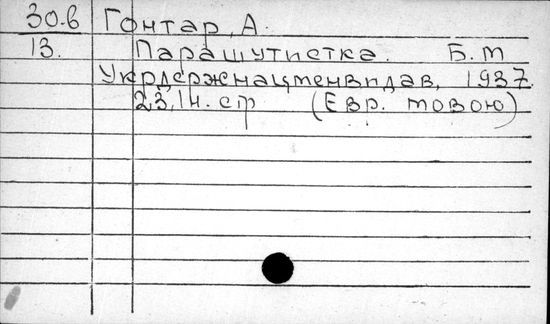 30.в Гонтар, А.
13. Парашутистка. Б.м
Укрдержнацменвидав, 1937.
23, 1н. ст (Евр. мовою)